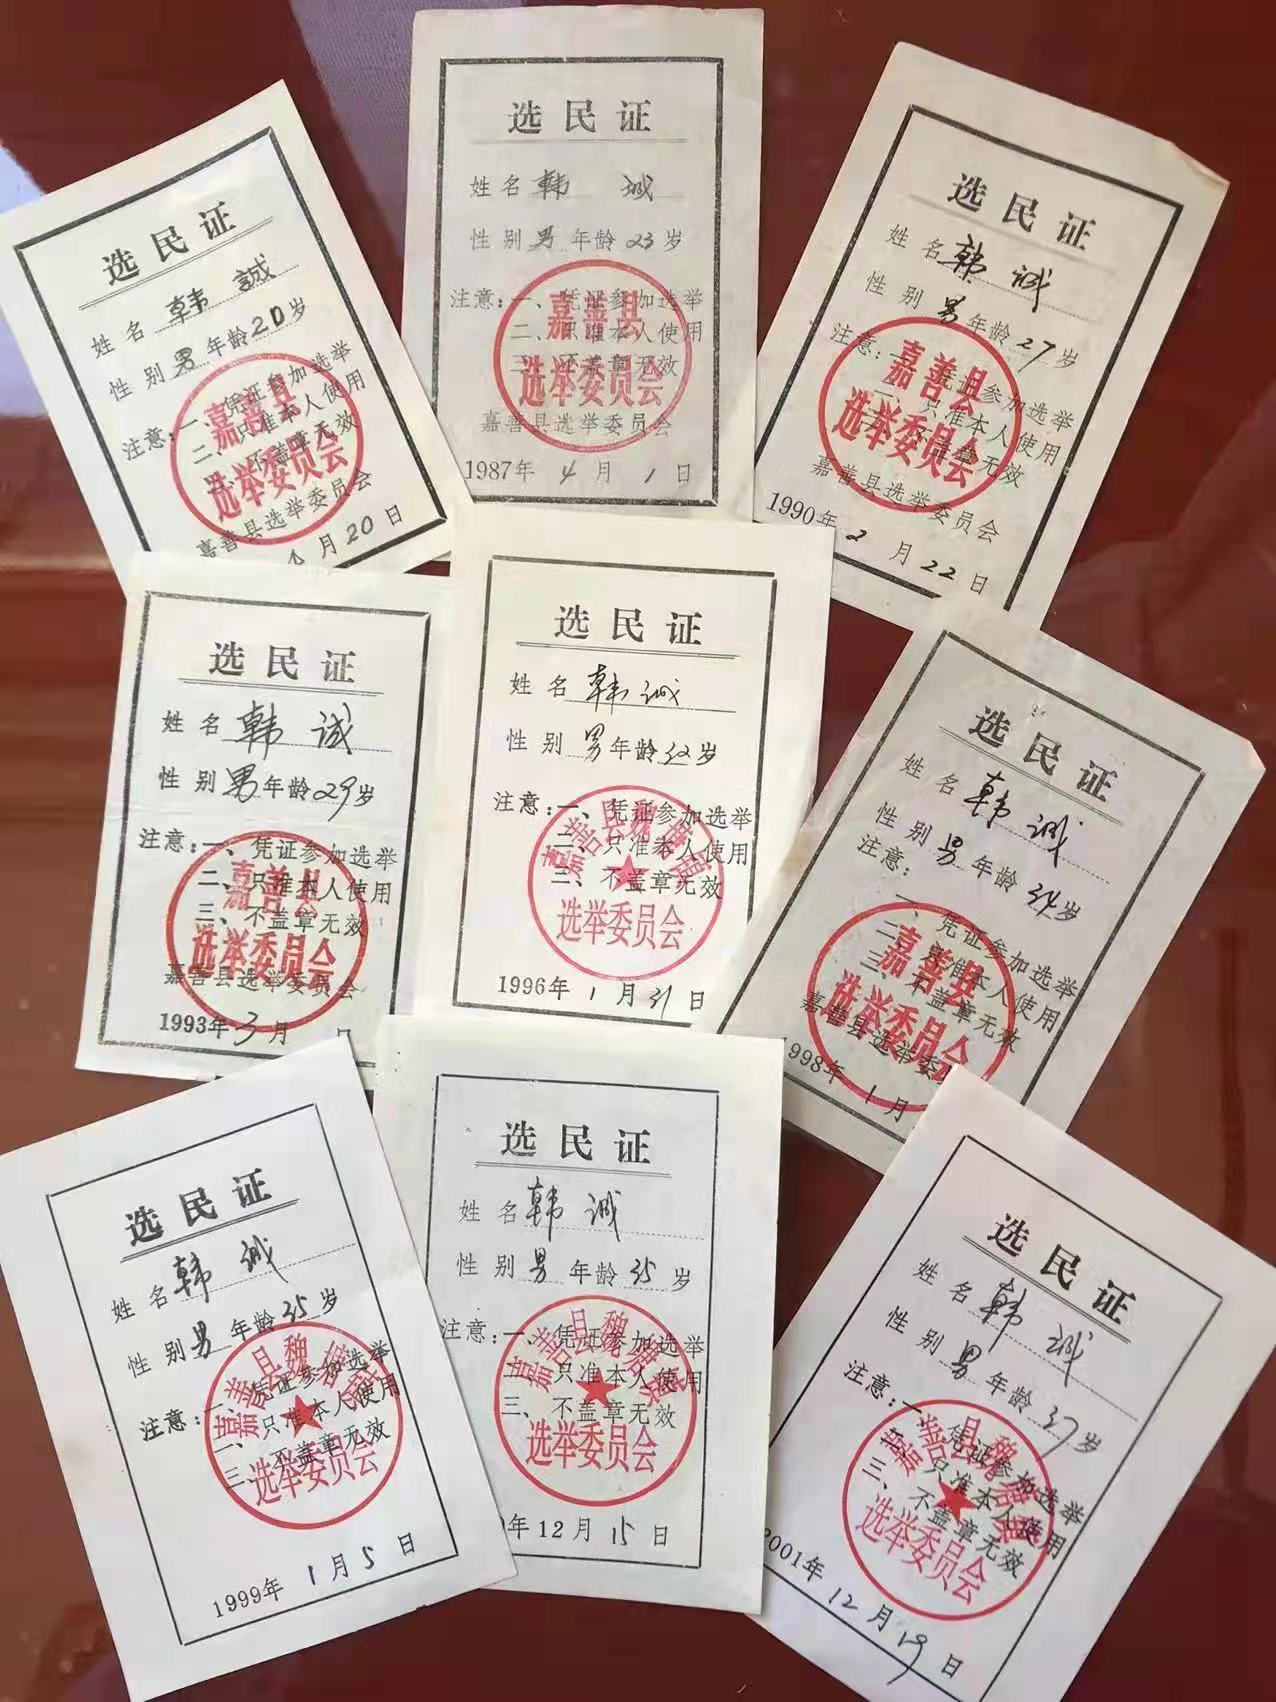 选民证
姓名 韩 誠
性别 男 年龄 20 岁
注意：一、凭证参加选举
二、只准本人使用
三、不盖章无效
嘉善县选举委员会
月 20 日
嘉善县
选举委员会
选民证
姓名 韩 诚
性别 男 年龄 23 岁
注意：一、凭证参加选举
二、只准本人使用
三、不盖章无效
嘉善县选举委员会
1987年 4 月 1 日
嘉善县
选举委员会
选民证
姓名 韩 诚
性别 男 年龄 27 岁
注意：一、凭证参加选举
二、只准本人使用
三、不盖章无效
嘉善县选举委员会
1990年 2 月 22 日
嘉善县
选举委员会
选民证
姓名 韩 诚
性别 男 年龄 29 岁
注意：一、凭证参加选举
二、只准本人使用
三、不盖章无效
嘉善县选举委员会
1993年 3 月 日
嘉善县
选举委员会
选民证
姓名 韩 诚
性别 男 年龄 32 岁
注意：一、凭证参加选举
二、只准本人使用
三、不盖章无效
1996年 1 月 31 日
嘉善县魏塘镇
选举委员会
选民证
姓名 韩 诚
性别 男 年龄 34 岁
注意：
一、凭证参加选举
二、只准本人使用
三、不盖章无效
嘉善县选举委
1998年 1 月
嘉善县
选举委员会
选民证
姓名 韩 诚
性别 男 年龄 35 岁
注意：一、凭证参加选举
二、只准本人使用
三、不盖章无效
1999年 1 月 5 日
嘉善县魏塘镇
选举委员会
选民证
姓名 韩 诚
性别 男 年龄 35 岁
注意：一、凭证参加选举
二、只准本人使用
三、不盖章无效
年 12 月 15 日
嘉善县魏塘镇
选举委员会
选民证
姓名 韩 诚
性别 男 年龄 37 岁
注意：一、凭证参加选举
二、只准本人使用
三、不盖章无效
2001年 12 月 19 日
嘉善县魏塘镇
选举委员会